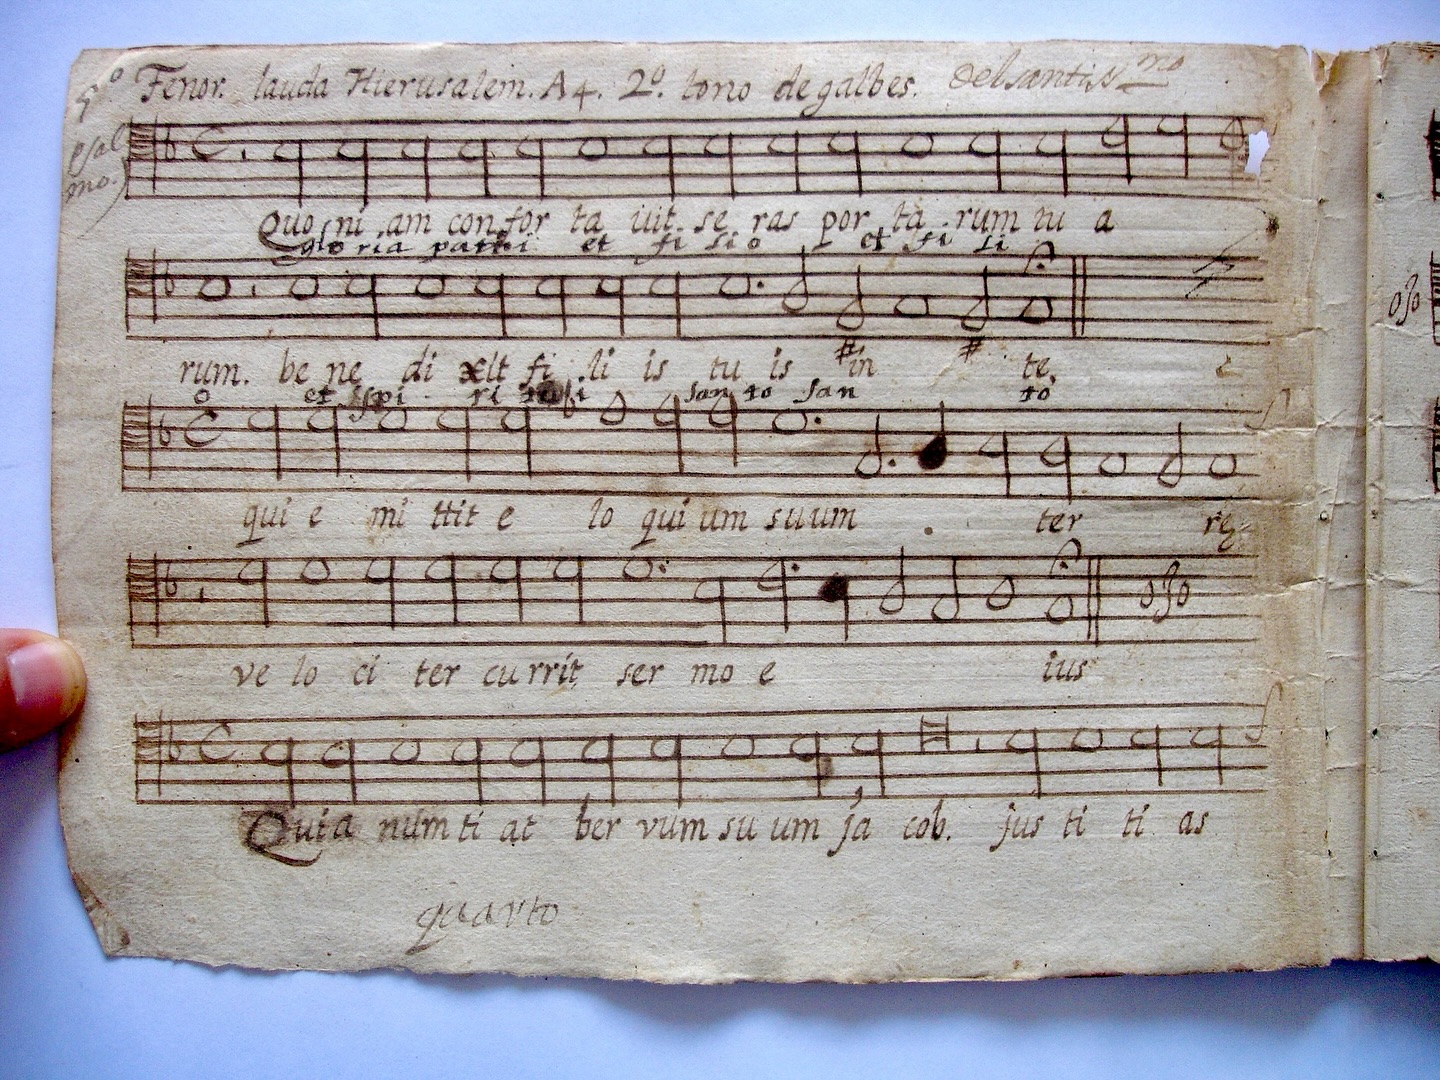 5º
Tenor. lauda Hierusalem. A 4. 2º. tono de galbes. Delsantissmo
psal
mo.
Quo ni am con for ta uit. se ras por ta rum tu a
glo ria patri et fi li o et fi li
rum. be ne di xit fi li is tu is in te,
o et spi ri tu i san to san to
qui e mi ttit e lo qui um suum ter re
ve lo ci ter currit ser mo e ius
Quia num ti at ber vum su um ja cob. jus ti ti as
quarto